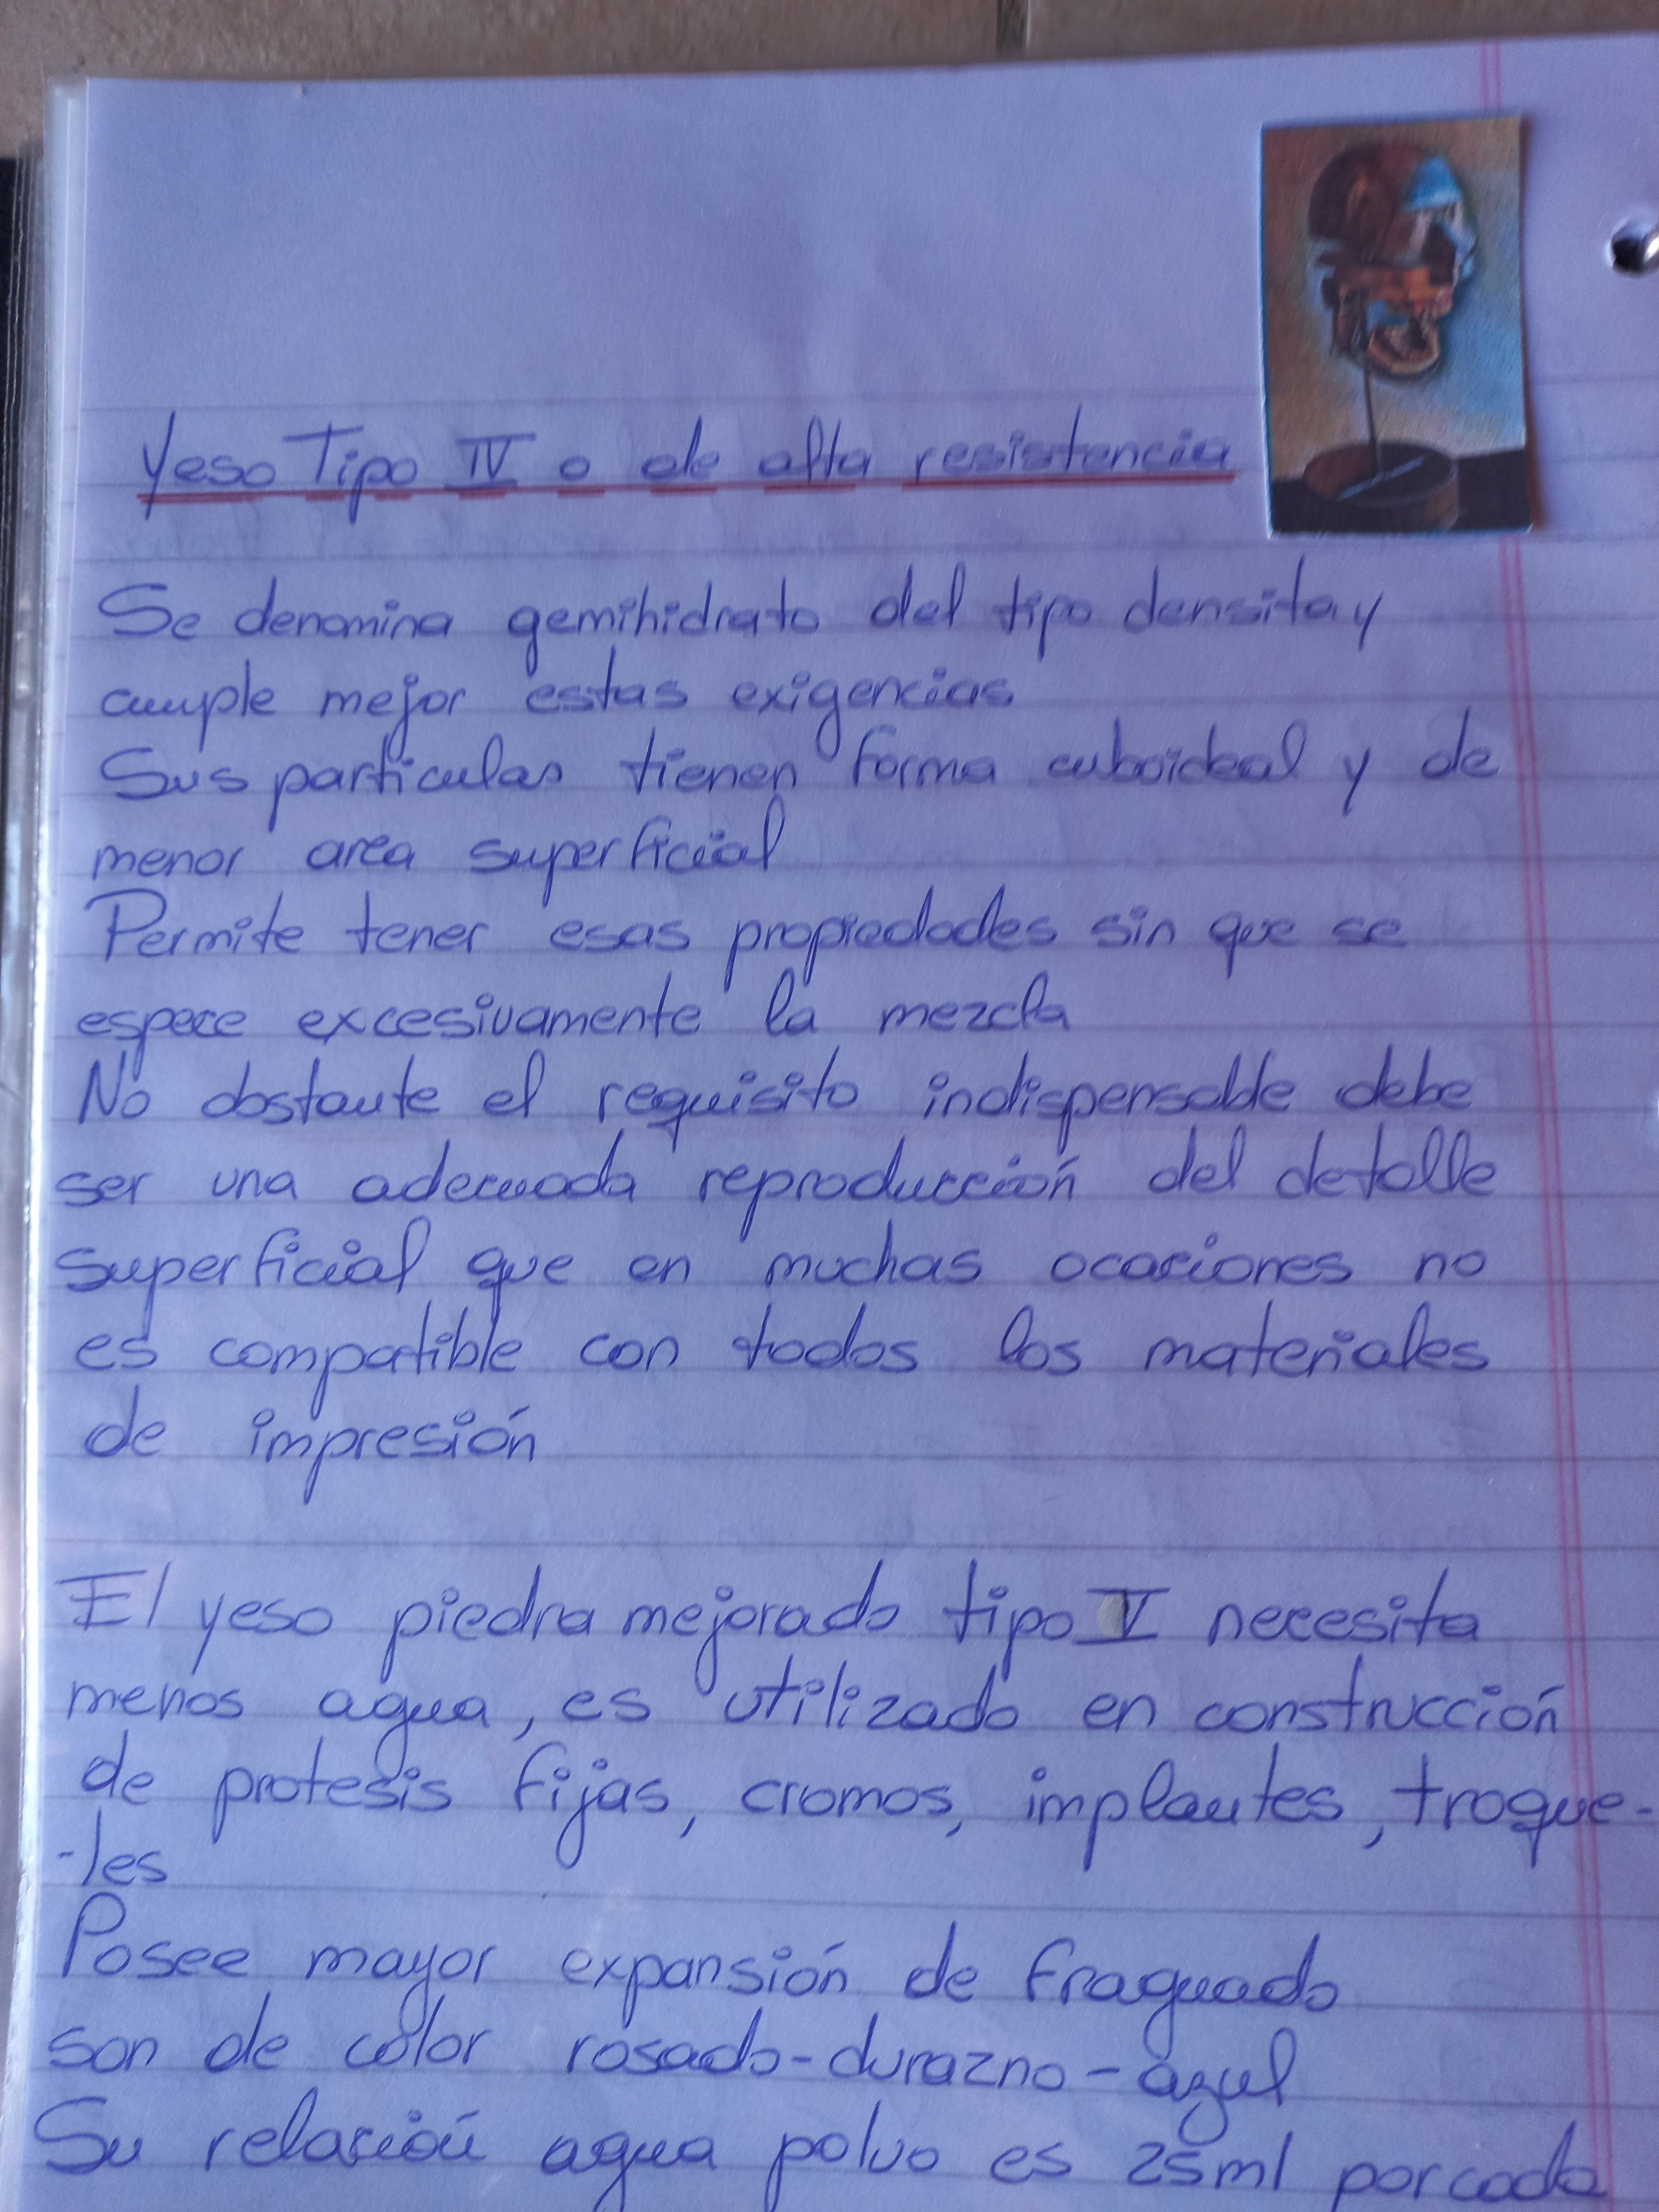 Yeso Tipo IV o de alta resistencia
Se denomina gemihidrato del tipo densita y
cumple mejor estas exigencias
Sus particulas tienen forma cuboideal y de
menor area superficial
Permite tener esas propiedades sin que se
espece excesivamente la mezcla
No obstante el requisito indispensable debe
ser una adecuada reproducción del detalle
superficial que en muchas ocaciones no
es compatible con todos los materiales
de impresión
El yeso piedra mejorado tipo V necesita
menos agua, es utilizado en construcción
de protesis fijas, cromos, implantes, troque-
-les
Posee mayor expansión de fraguado
son de color rosado-durazno-azul
Su relación agua polvo es 25ml por cada